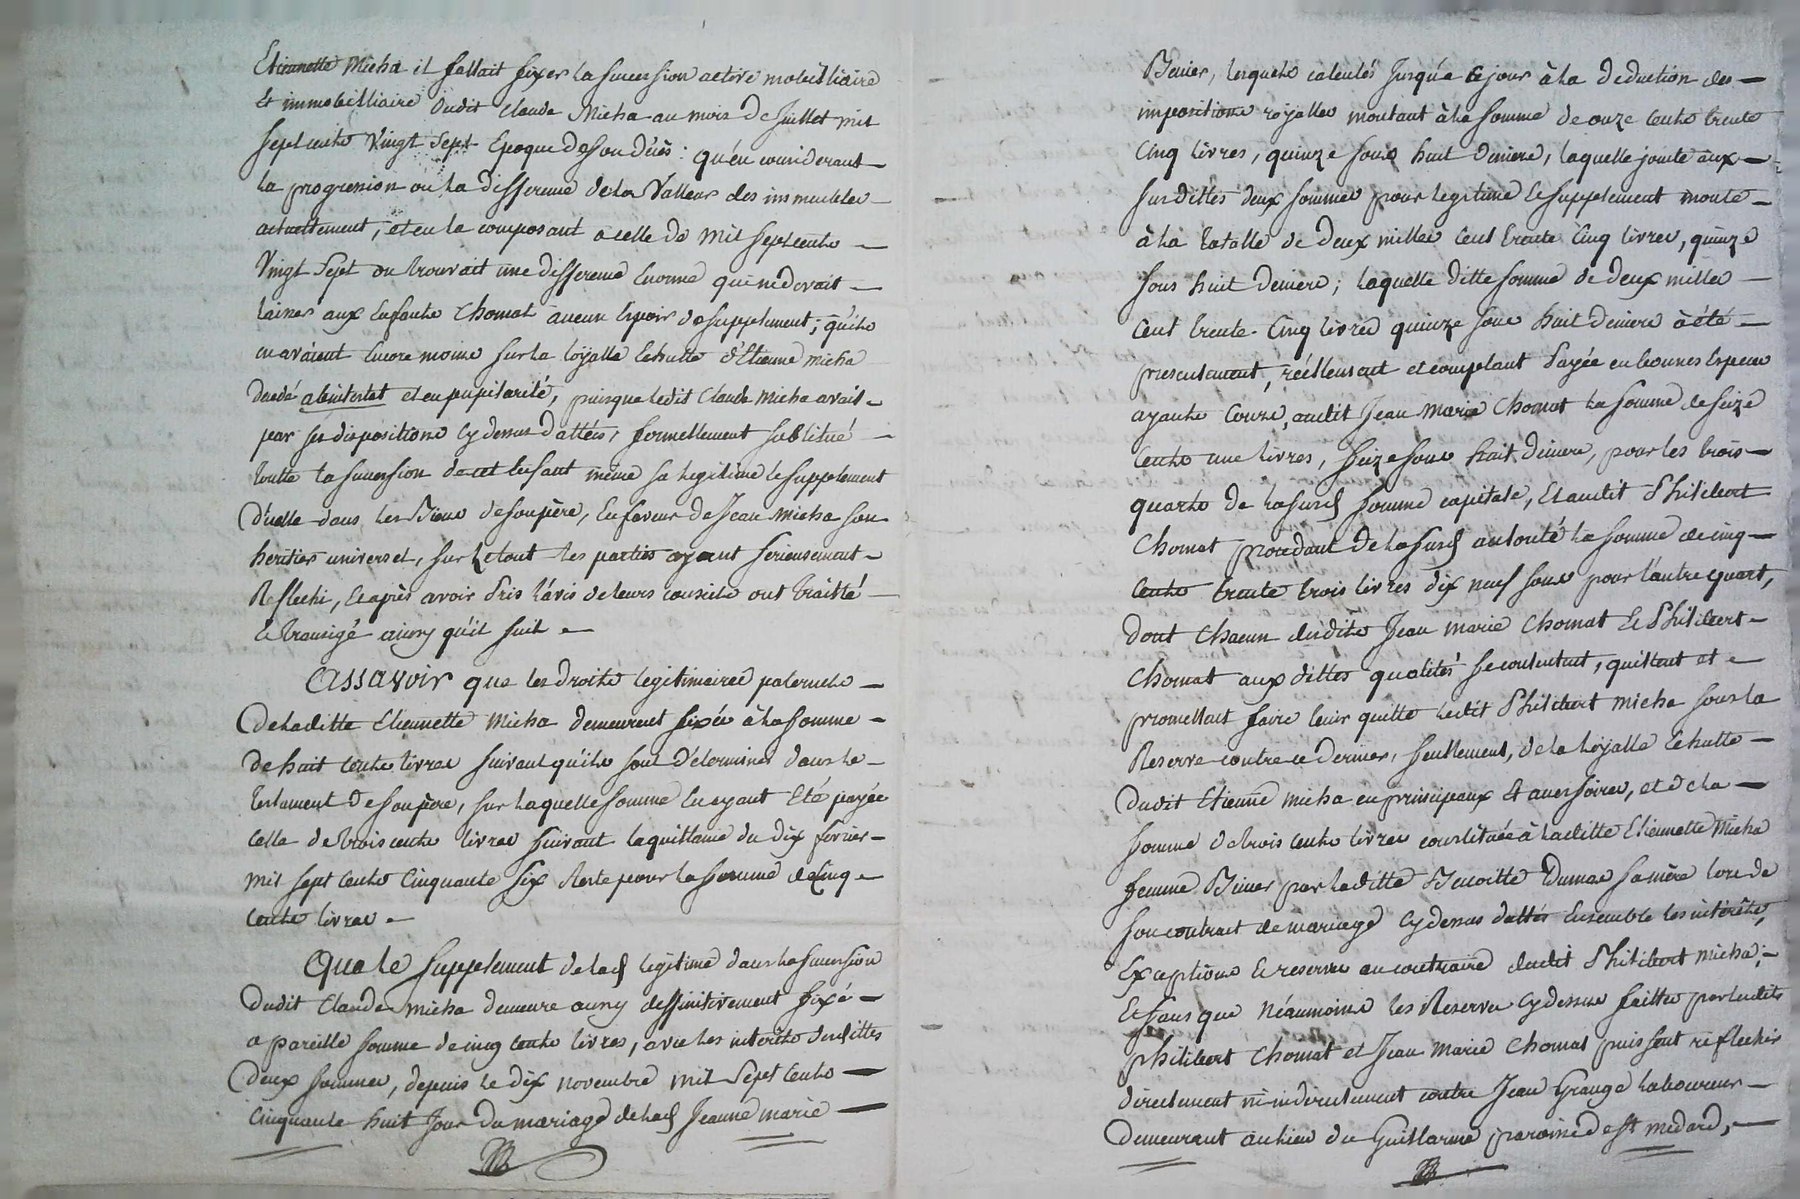 Etiennette Micha il fallait fixer la succession active mobilliaire
et immobilliaire dudit Claude Micha au mois de Juillet mil
sept cents vingt sept Epoque de son décès : qu'en considerant
la progression ou la difference de la valleur des immeubles
actuellement, et en la composant a celle de mil sept cents
vingt sept on trouvait une difference Enorme qui ne devait
laisser aux Enfants Chomat aucun Espoir de supplement ; qu'ils
en avaient Encore moins sur la loÿalle Echutte d'Etienne Micha
decedé abintestat et en pupilarité, puisque ledit Claude Micha avait
par ses dispositions cy dessus dattées, formellement substitué
toutte la succession de cet Enfant même sa legitime et supplement
d'icelle dans les Biens de son père, En faveur de Jean Micha son
heritier universel, sur Le tout les parties ayant serieusement
Reflechi, Et après avoir Pris l'avis de leurs conseils ont traitté
et transigé ainsy qu'il suit
Assavoir que les droits legitimaires paternels
De laditte Etiennette Micha demeurent fixés à la somme
de huit cents livres suivant qu'ils sont déterminés dans le
testament de son père, sur laquelle somme En ayant Eté payée
celle de trois cents livres suivant la quittance du dix fevrier
mil sept cents cinquante six Reste pour la somme de cinq
cents livres
Que le supplement de lad legitime dans la succession
dudit Claude Micha demeure aussy deffinitivement fixé
a pareille somme de cinq cents livres, avec les interêts desdittes
Deux sommes, depuis le dix novembre mil sept cents
cinquante huit Jour du mariage de lad Jeanne Marie
Benier, lesquels calculés Jusqu'a ce jour à la deduction des
impositions royalles montant à la somme de onze cents trente
cinq livres, quinze sous huit deniers, laquelle jointe aux
susdittes deux sommes pour legitime et supplement monte
à la totalle de deux milles cent trente cinq livres, quinze
sous huit deniers ; laquelle ditte somme de deux milles
cent trente cinq livres quinze sous huit deniers à été
presentement, réellement et comptant Payée en bonnes Especes
ayants cours, audit Jean Marie Chomat la somme de seize
cents une livres, seize sous huit deniers, pour les trois
quarts de la susd somme capitale, Et audit Philibert
Chomat procedant de la susd autorité la somme de cinq
cents trente trois livres dix neuf sous pour l'autre quart,
dont chacun desdits Jean Marie Chomat Et Philibert
Chomat aux dittes qualités se contentent, quittent et
promettent faire tenir quitte ledit Philibert Micha sous la
Reserve contre ce dernier, seullement, de la loÿalle Echutte
dudit Etienne Micha en principeaux Et accessoires, et de la
somme de trois cents livres constituée à laditte Etiennette Micha
femme Benier par laditte Benoitte Dumas sa mère lors de
son contrait de mariage cy dessus dattés Ensemble les interêts,
Exceptions et reserves au contraire dudit Philibert Micha ;
Et sans que Néaumoins les Reserves cy dessus faittes par lesdits
Philibert Chomat et Jean Marie Chomat puissent reflechir
directement ni indirectement contre Jean Grange laboureur
demeurant au lieu du Guillarme paroisse de St Medard,